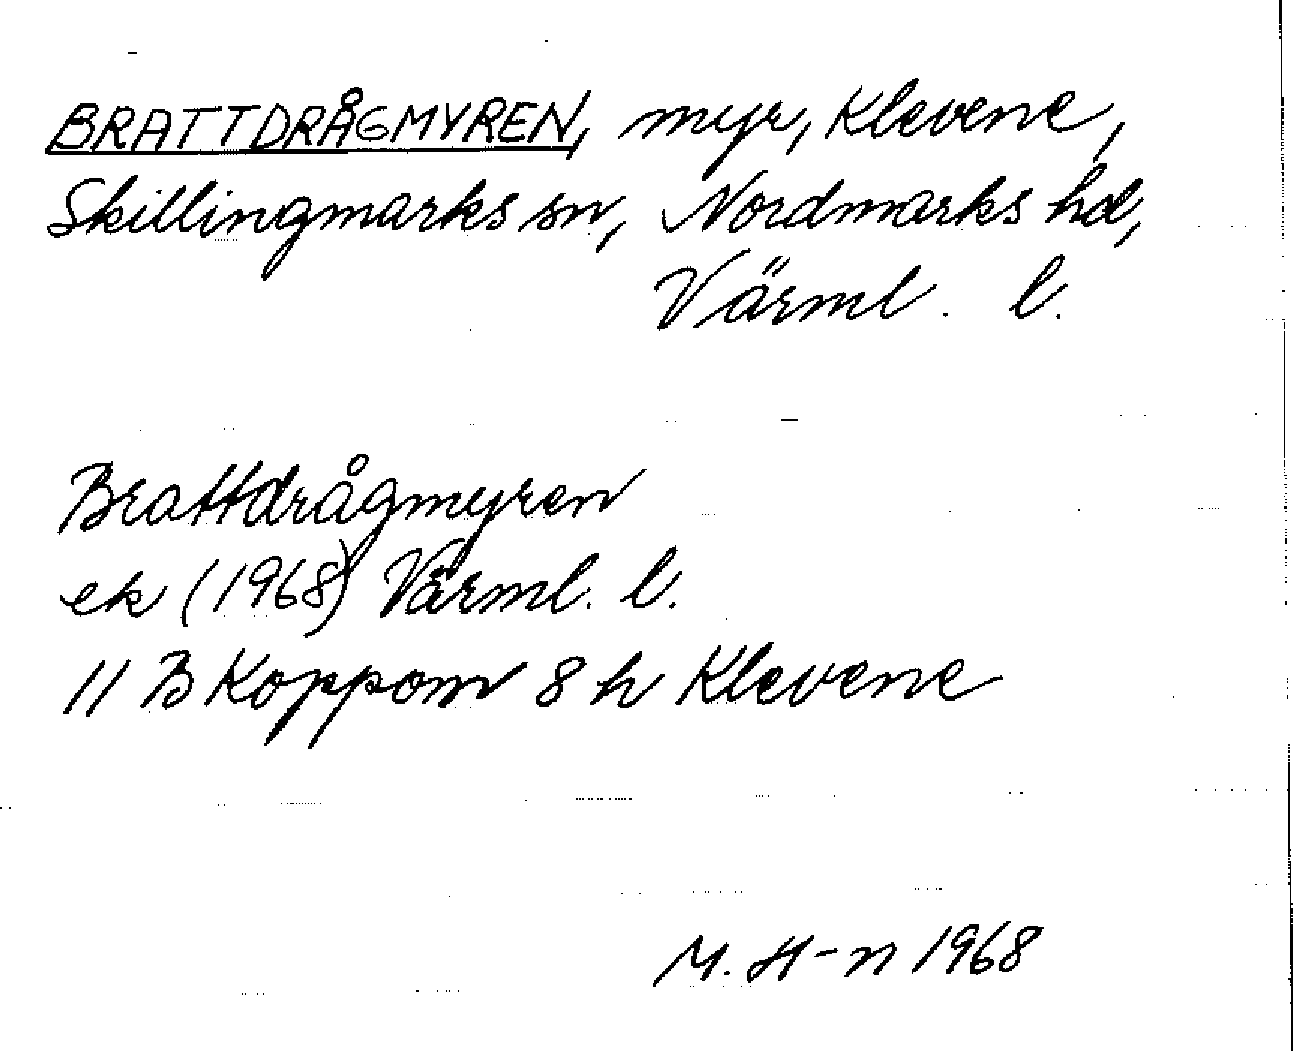 BRATTDRÅGMYREN, myr, Klevene,
Skillingmarks sn, Nordmarks hd,
Värml. l.
Brattdrågmyren
ek (1968) Värml. l.
11 B Koppom 8 h Klevene
M. H-n 1968